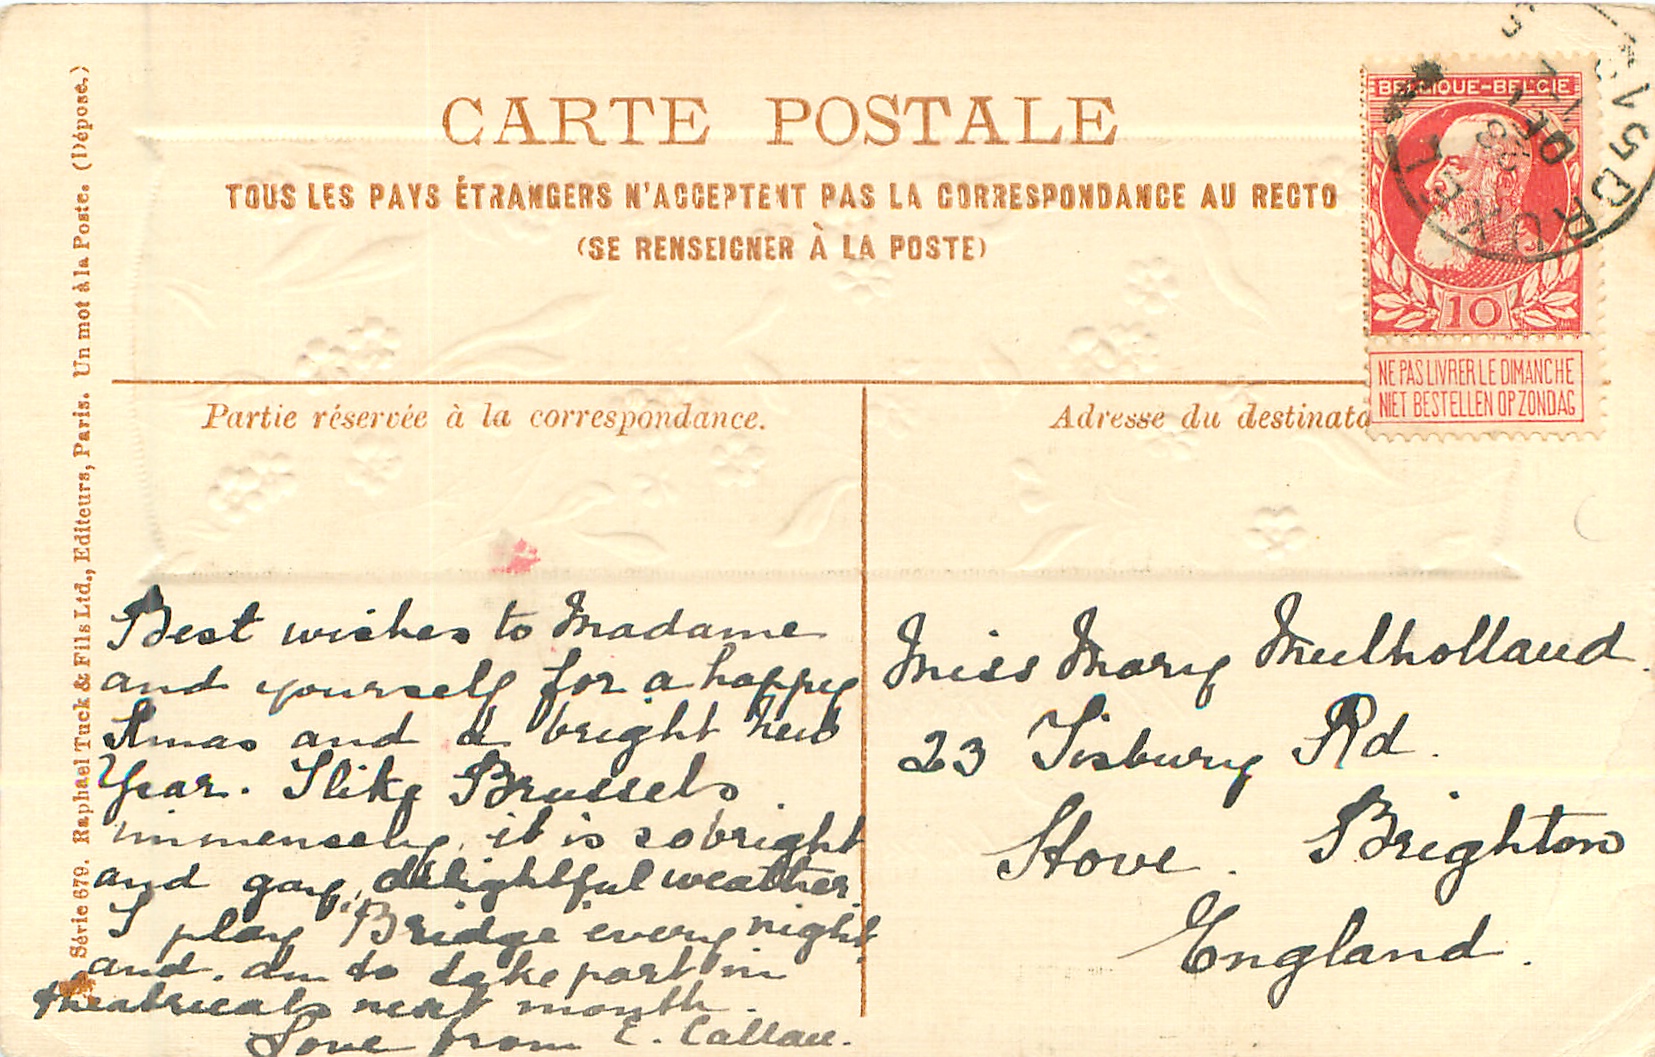 CARTE POSTALE
TOUS LES PAYS ÉTRANGERS N'ACCEPTENT PAS LA CORRESPONDANCE AU RECTO
(SE RENSEIGNER À LA POSTE)
BELGIQUE-BELGIE
10
NE PAS LIVRER LE DIMANCHE
NIET BESTELLEN OP ZONDAG
Série 679. Raphael Tuck & Fils Ltd., Editeurs, Paris. Un mot à la Poste. (Dépose.)
Partie réservée à la correspondance.
Adresse du destinata
Best wishes to Madame
and yourself for a happy
Xmas and a bright New
Year. I like Brussels
immensely, it is so bright
and gay, delightful weather.
I play Bridge every night
and am to take part in
theatricals next month.
Love from E. Callau.
Miss Mary Mulholland.
23 Tisbury Rd.
Hove. Brighton
England.